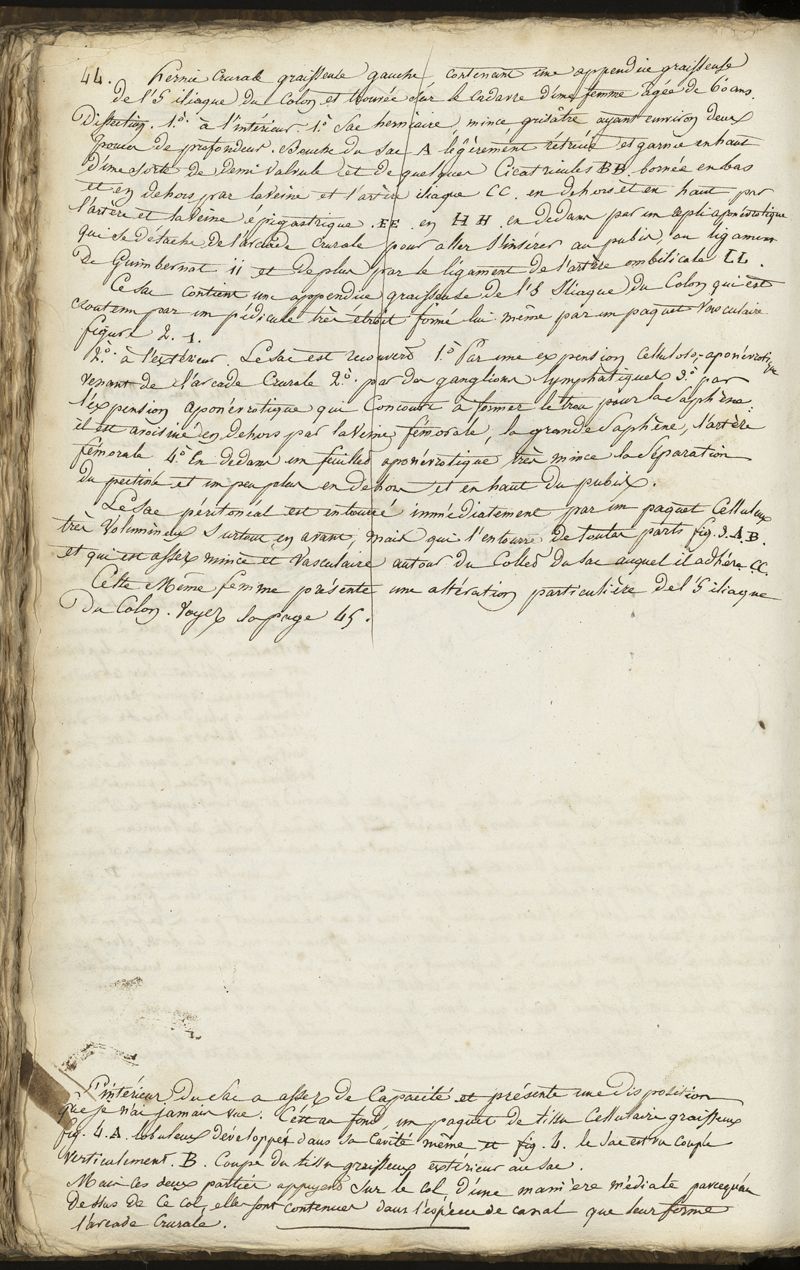 44. hernie Crurale graisseuse gauche, contenant une appendice graisseuse
de l'S iliaque du Colon et trouvée sur le cadavre d'une femme agée de 60 ans.
Dissection. 1.º à l'intérieur. 1.º Sac herniaire, mince grisâtre ayant environ deux
pouces de profondeur. Bouche du sac A légèrement rétrécie et garnie en haut
d'une sorte de demi valvule et de quelques Cicatricules BB. bornée en bas
et en dehors par la veine et l'artère iliaque CC. en dehors et en haut par
l'artère et la veine epigastrique. EE. en HH. en dedans par un repli aponévrotique
qui se détache de l'arcade crurale pour aller s'inserer au pubis au ligament
De Guimbernat ii et de plus par le ligament de l'artère ombilicale LL.
Ce sac contient une appendice graisseuse de l'S Iliaque du Colon qui est
soutenu par un pédicule très étroit formé lui même par un paquet Vasculaire
figure 2. 1.
2.º à l'extérieur. Le sac est recouvert 1.º Par une expension celluloso-aponévrotique
venant de l'arcade Crurale 2.º par des ganglions lymphatiques 3.º par
l'expension aponévrotique qui Concourt à former le trou pour la saphène:
il est avoisiné en dehors par la Veine fémorale, la grande saphène, l'artère
fémorale 4.º En dedans un feuillet aponévrotique, très mince la séparation
du pectiné et un peu plus en dehors et en haut du pubis.
Le sac péritonial est entouré immédiatement par un paquet Celluleux
très Volumineux surtout en avant, mais qui l'entourre de toutes parts fig. 3. A. B.
et qui est assez mince et Vasculaire autour du Collet du sac auquel il adhère CC.
Cette Même femme présente une altération particulière de l'S iliaque
Du Colon. Voyez sa page 45.
L'intérieur du Sac a assez de Capacité et présente une disposition
que je n'ai jamais vue. C'est au fond, un paquet de tissu Cellulaire graisseux
fig. 4. A. lobuleux développé dans sa Cavité même et fig. 4. le sac est vu Coupé
Verticalement. B. Coupe du tissu graisseux extérieur au sac.
Mais ces deux parties appuyent sur le col d'une manière médiate parcequ'au
dessus de ce col, elles sont contenues dans l'espèce de canal que leur forme
l'arcade Crurale.